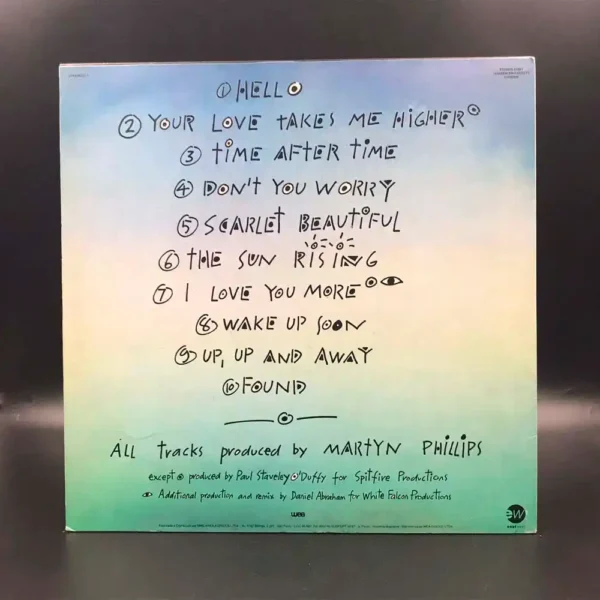 ① HELLO
② YOUR LOVE TAKES ME HIGHER
③ TIME AFTER TIME
④ DON'T YOU WORRY
⑤ SCARLET BEAUTIFUL
⑥ THE SUN RISING
⑦ I LOVE YOU MORE
⑧ WAKE UP SOON
⑨ UP, UP AND AWAY
⑩ FOUND
ALL tracks produced by MARTYN PHILLIPS
except produced by Paul Staveley O'Duffy for Spitfire Productions
Additional production and remix by Daniel Abraham for White Falcon Productions
wea
ew